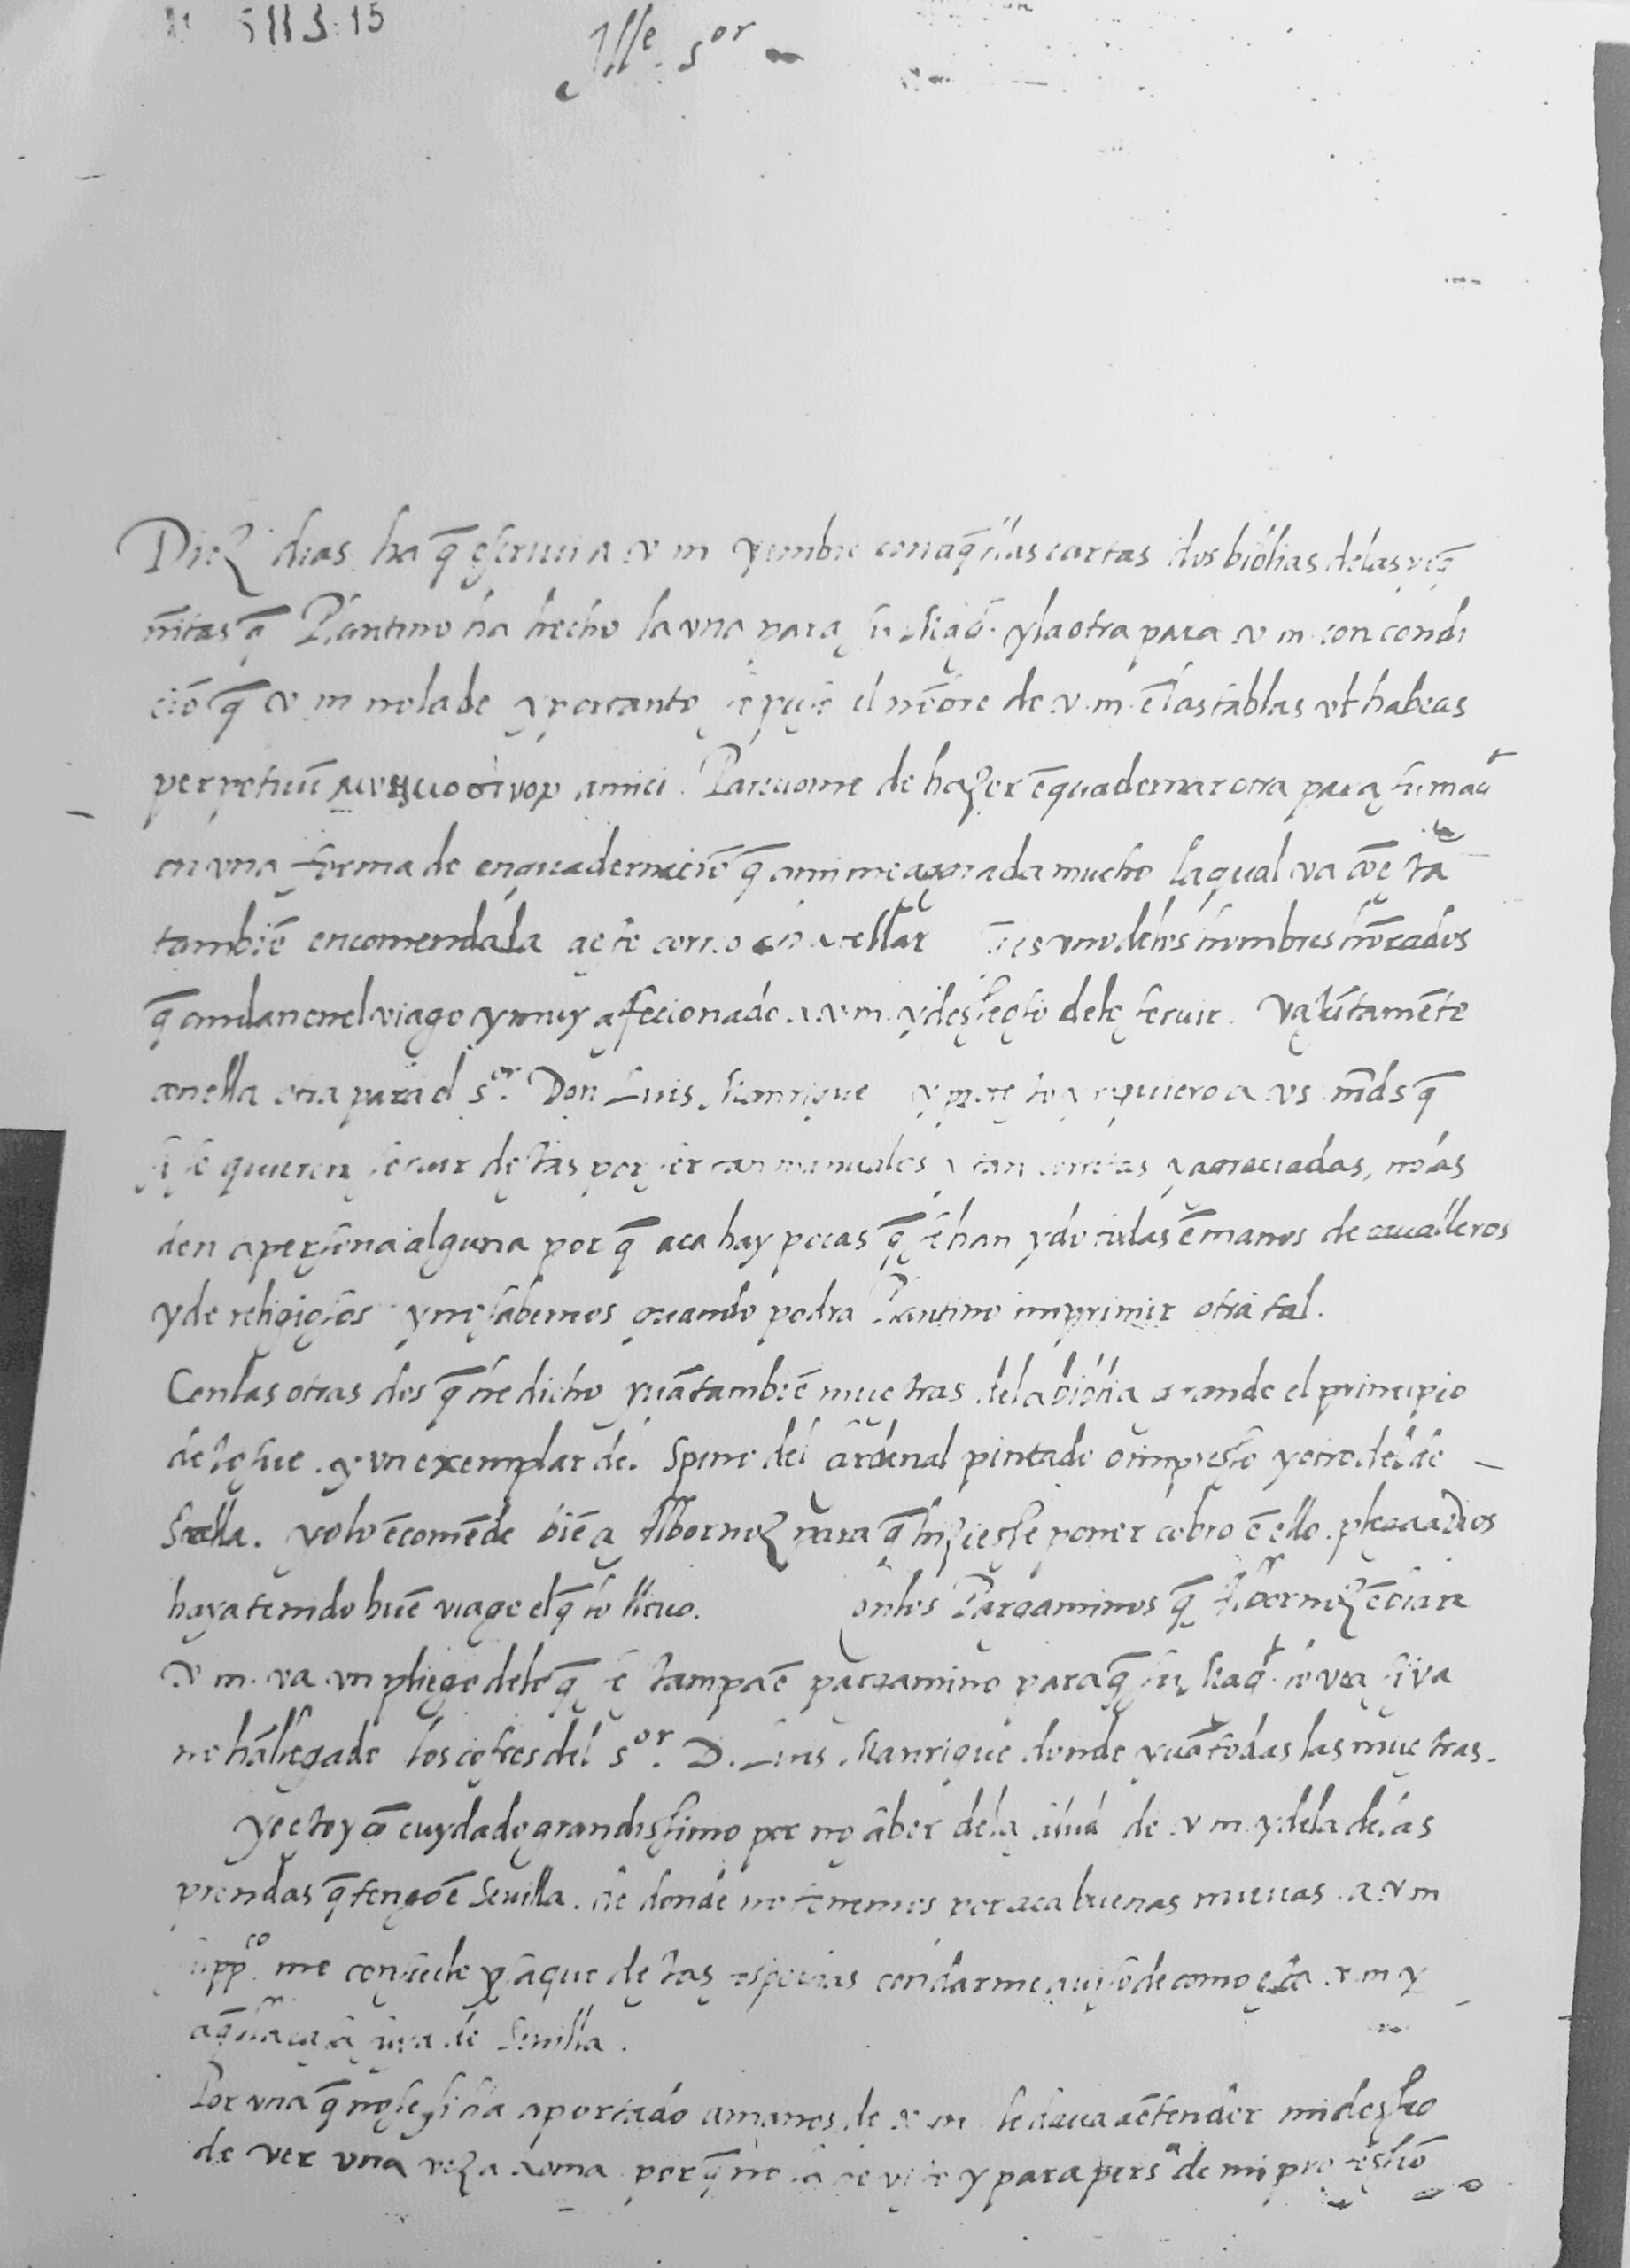 5113.15
Ille. sor
Diez dias ha q̃ escriui a v m y embie con aq̃llas cartas dos biblias delas peq̃
ñitas q̃ Plantino ha hecho la vna para su Magd. y la otra para v m. con condi
ciõ q̃ v m no la de y por tanto se puso el nõbre de v.m. ẽ las tablas vt habeas
perpetuũ μνημοσυνον amici. Pareciome de hazer ẽquadernar otra para su magt
en vna forma de enquaderniciõ q̃ a mi me agrada mucho la qual va cõ esta
tambiẽ encomendada a este correo es vno delos hombres hõrados
q̃ andan en el viage y muy afecionado a v.m. y desseoso dele seruir. Va jũtamẽte
con ella otra para el sor. Don Luis Manrique y protesto y requiero a vs. mds q̃
si se quieren seruir destas por ser tan manuales y tan corretas y agraciadas, no las
den a persona alguna por q̃ aca hay pocas q̃ se han ydo todas ẽ manos de caualleros
y de religiosos y no sabemos quando podra Plantino imprimir otra tal.
Con las otras dos q̃ he dicho yuã tambiẽ muestras dela biblia grande el principio
de Iosue. y vn exemplar del Spino del Cardenal pintado o impresso y otro del de
Stella. yo lo ẽcomẽde biẽ a Albornoz para q̃ hiziesse poner cobro ẽ ello. plega a Dios
haya tenido buẽ viage el q̃ lo lleuo. Cõ los Pargaminos q̃ Albornoz ẽbiara
v m. va vn pliego delo q̃ se stampa ẽ pargamino para q̃ su Magt. lo vea si ya
no hã llegado los cofres del sor. D. Luis Manrique donde yuã todas las muestras.
Yo estoy cõ cuydado grandissimo por no saber dela salud de v m. y dela delas
prendas q̃ tengo ẽ Seuilla. de donde no tenemos por aca buenas nueuas. a v m
suppco. me consuele y saque destas especias con darme auiso de como esta v.m. y
aq̃lla casa de Seuilla.
Por vna q̃ no se si ha aportado a manos de v m le daua a ẽtender mi desseo
de ver vna vez a Roma porq̃ no la he visto y para persa de mi professiõ